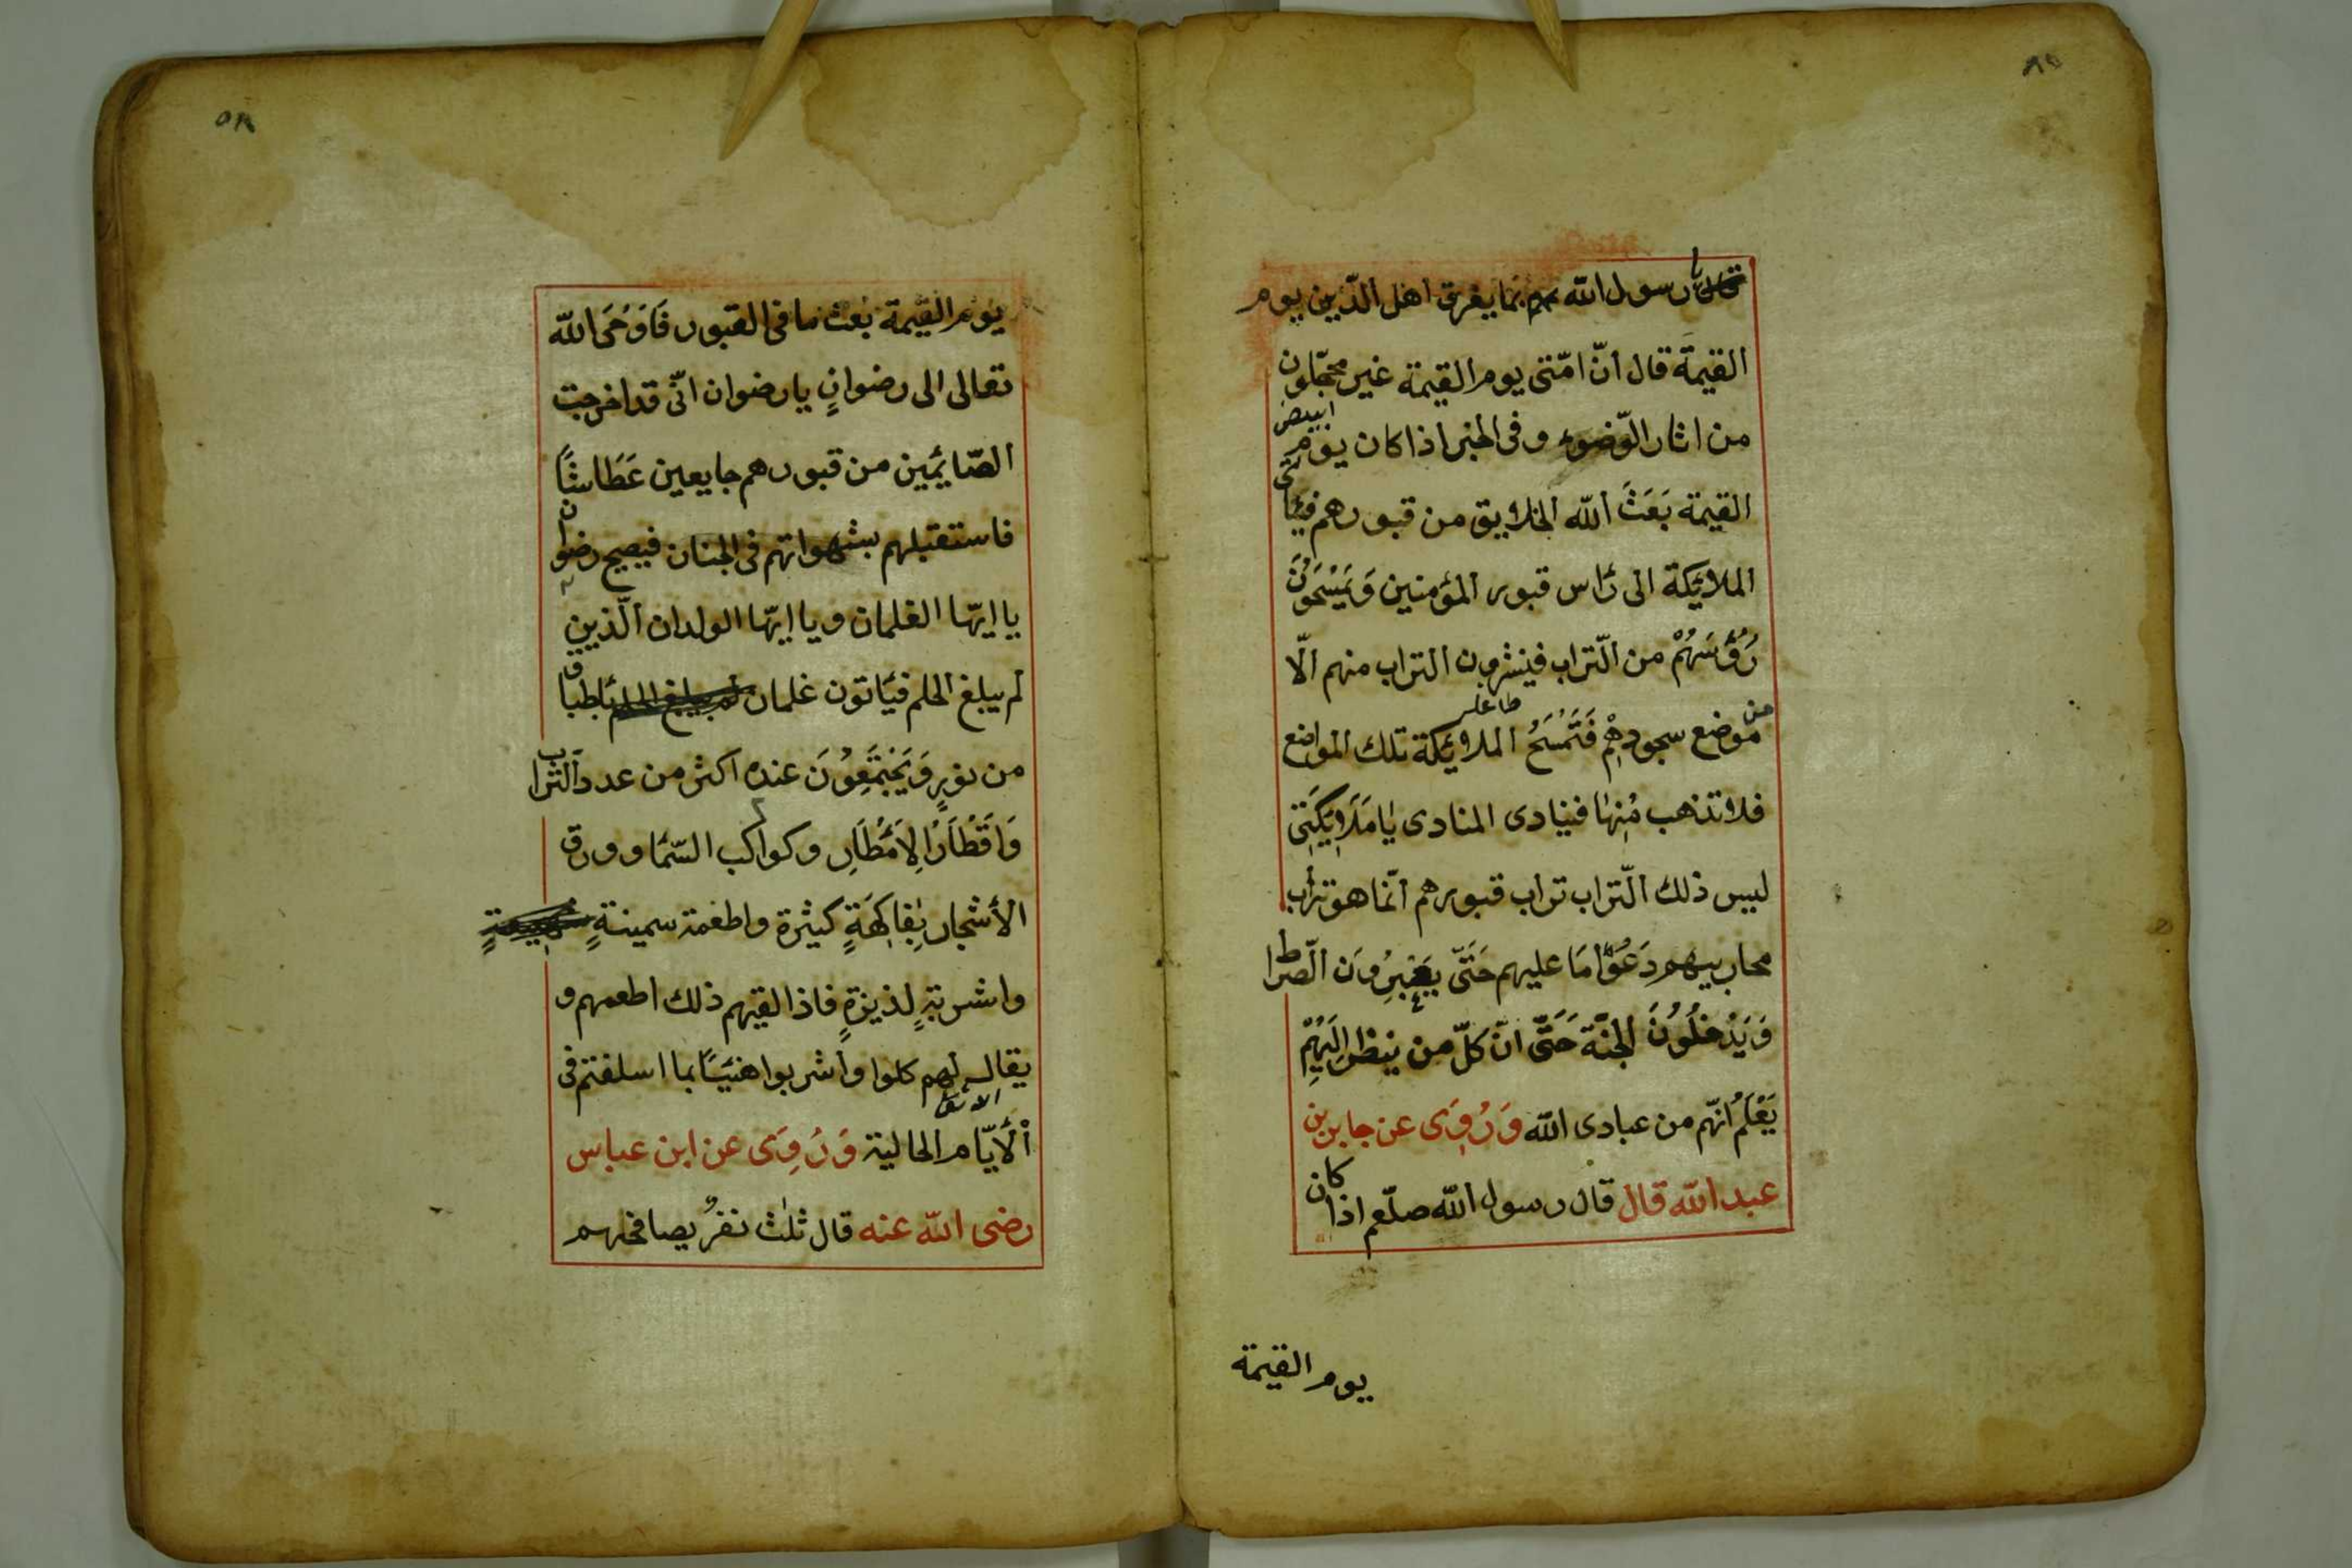 يا رسول الله بما يفرق اهل الدّين يوم
القيمة قال انّ امّتى يوم القيمة غير محجّلون
ابيض
من اثار الوّضوء وفى الخبر اذا كان يوم
القيمة بَعَثَ الله الخلايق من قبورهم فيأتى
الملائكة الى رَأس قبور المؤمنين وَيَمْسَحُونَ
رُؤُسَهُمْ من التّراب فينشرون التراب منهم الّا
من موضع سجودهِمْ فَتَمْسَحُ الملائكة تلك المواضع
فلا تذهب مُنِهٰا فينادى المنادى يٰا مَلَايِكَتِى
ليس ذلك التّراب تراب قبورهم انّما هو تراب
محاريبهم دَعَوُّا مَا عليهم حَتَّى يَعْبِرُونَ الصّراط
وَيَدْخُلُونَ الجَنَّة حَتَّى انّ كلّ من ينظر اِلَيْهِمْ
يَعْلَمُ انّهم من عبادى الله وَرُوِىَ عن جابر بن
عبد الله قال قال رسول الله صلّعم اذا كان
يوم القيمة
٥٨
يوم القيمة بعث ما فى القبور فَاَوْحَى الله
تعالى الى رضوانٍ يا رضوان انّى قد اخرجت
الصّائِمين من قبورهم جايعين عَطَاشًا
فاستقبلهم بشهواتهم فى الجنان فيصيح رضوان
يا ايّها الغلمان ويا ايّها الولدان الّذين
لم يبلغ الحلم فيأتون غلمان بأطباق
من نورٍ وَيَجْتَمِعُونَ عنده اكثر من عدد التّراب
وَاَقْطَارُ الِاَمْطَارِ وكواكب السّمٰا وورق
الأشجار بِفٰاكِهَةٍ كثيرة واطعمة سمينةٍ
واشربتهٍ لذيزةٍ فاذا القيهم ذلك اطعمهم و
يقال لهم كلوا وأشربوا هنيئًا بما اسلفتم فى
الْأيّام الخالية وَرُوِىَ عن ابن عباس
رضى الله عنه قال ثلٰث نفرٌ يصافحهم